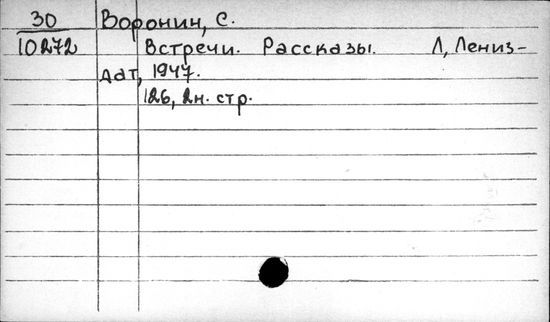 30 Воронин, С.
10272 Встречи. Рассказы. Л, Лениз-
дат, 1947.
126, 2н. стр.